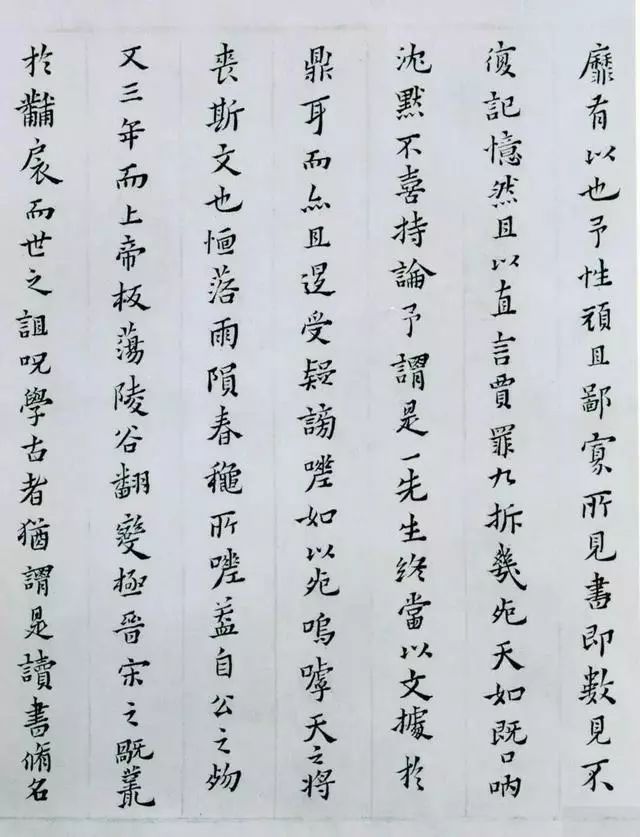 靡有以也予性頑且鄙寡所見書即數見不
復記憶然且以直言賈罪九折幾死天如既口吶
沈默不喜持論予謂是一先生終當以文據於
鼎耳而亦且受疑謗嗟如以死嗚嘑天之將
喪斯文也恒落雨隕春穐所嗟蓋自公之歾
又三年而上帝板蕩陵谷翻變極晉宋之叢
於黼扆而世之詛呪學古者猶謂是讀書脩名